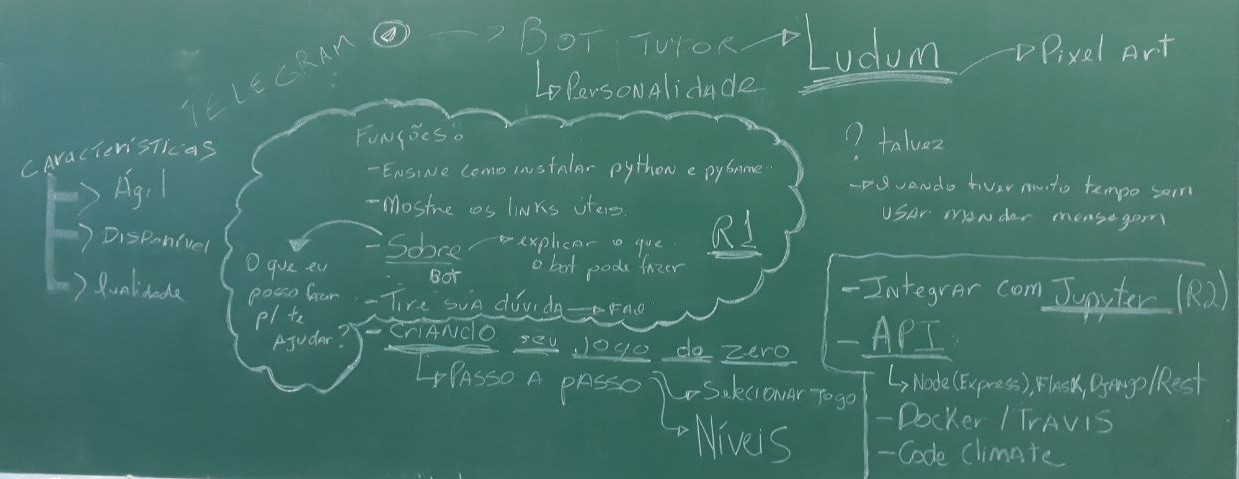 TELEGRAM
BOT TUTOR
Ludum
Pixel Art
Personalidade
Características
Ágil
Disponível
Qualidade
Funções:
- Ensine como instalar python e pygame.
- Mostre os links úteis.
- Sobre Bot
explicar o que o bot pode fazer
R1
O que eu
posso fazer
p/ te
ajudar?
- Tire sua dúvida
FAQ
- Criando seu jogo do zero
Passo a passo
Selecionar Jogo
Níveis
? talvez
Quando tiver muito tempo sem
usar mandar mensagem
- Integrar com Jupyter (R2)
- API
Node (Express), Flask, Django/Rest
- Docker / Travis
- Code Climate